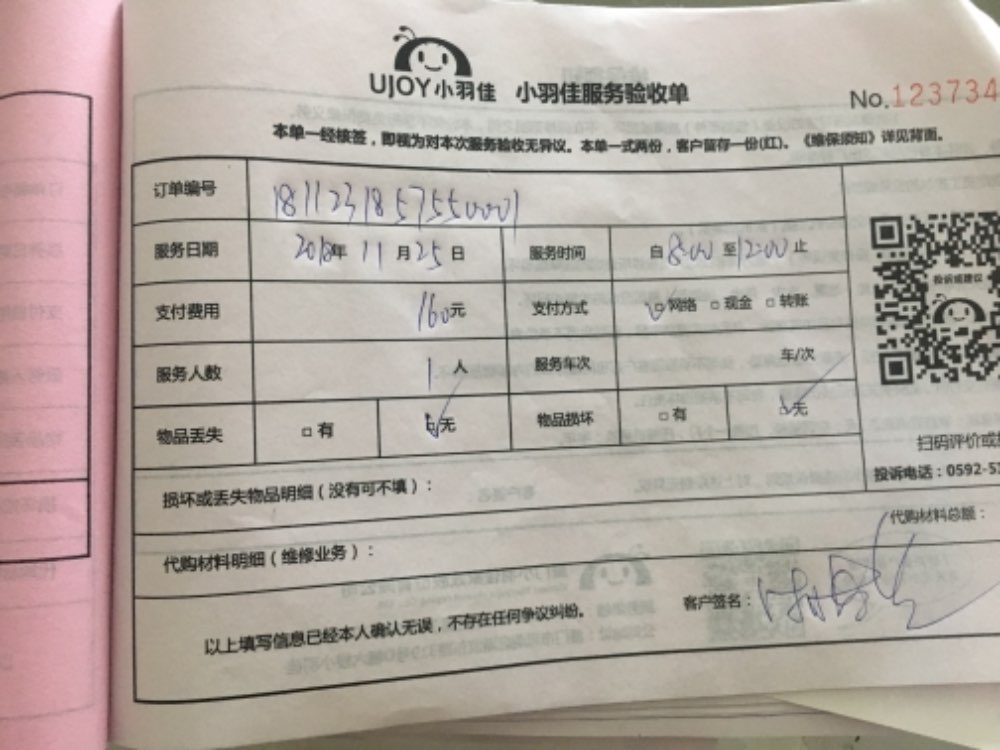 UJOY小羽佳 小羽佳服务验收单
No.123734
本单一经核签，即视为对本次服务验收无异议。本单一式两份，客户留存一份(红)。《维保须知》详见背面。
订单编号 1811231857550001
服务日期 2018年 11月25日 服务时间 自8:00至12:00止
支付费用 160元 支付方式 ☑网络 □现金 □转账
服务人数 1人 服务车次 车/次
物品丢失 □有 ☑无 物品损坏 □有 ☑无
投诉或建议
扫码评价或
投诉电话：0592-5
损坏或丢失物品明细（没有可不填）：
代购材料明细（维修业务）：
代购材料总额：
以上填写信息已经本人确认无误，不存在任何争议纠纷。
客户签名：